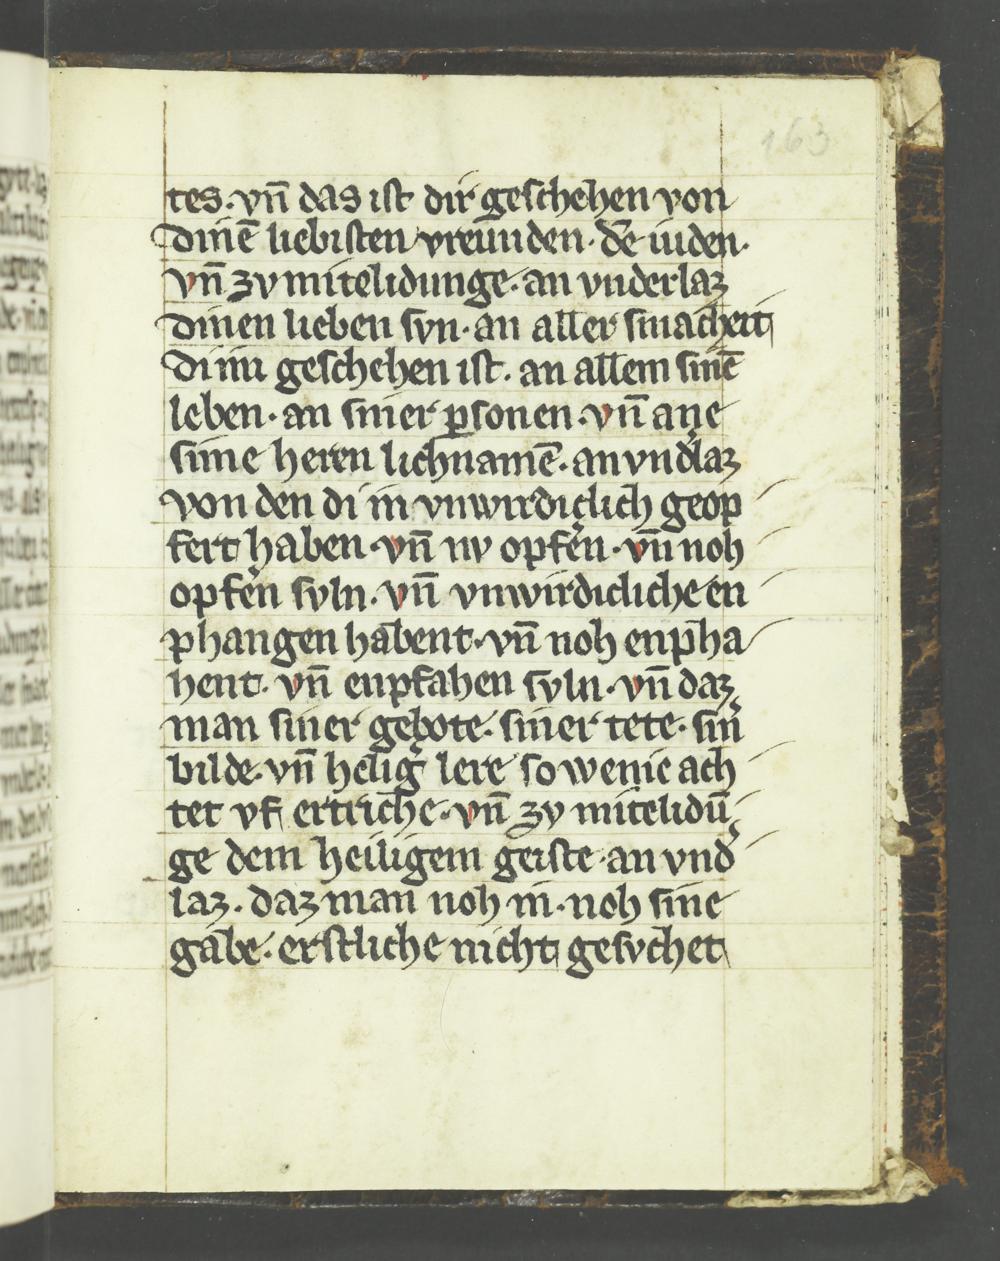 163
tes. vn̄ das ist dir geschehen von
dinē liebisten vreunden. dē iuden.
vn̄ zv mitelidunge. an vnderlaz
dinen lieben svn. an aller smacheit
di im geschehen ist. an allem sinē
leben. an siner ꝑsonen. vn̄ ane
sime heren lichnamē. an vnd̓laz
von den di in vnwirdiclich geop
fert haben. vn̄ nv opfe̓n. vn̄ noh
opfe̓n svln. vn̄ vnwirdicliche en
phangen habent. vn̄ noh enpha
hent. vn̄ enpfahen svln. vn̄ daz
man siner gebote. siner tete. sin̓
bilde. vn̄ heilig̓ lere so wenic ach
tet vf ertriche. vn̄ zv mitelidū
ge dem heiligem geiste. an vnd̓
laz. daz man noh in. noh sine
gabe. erstliche nicht gesvchet